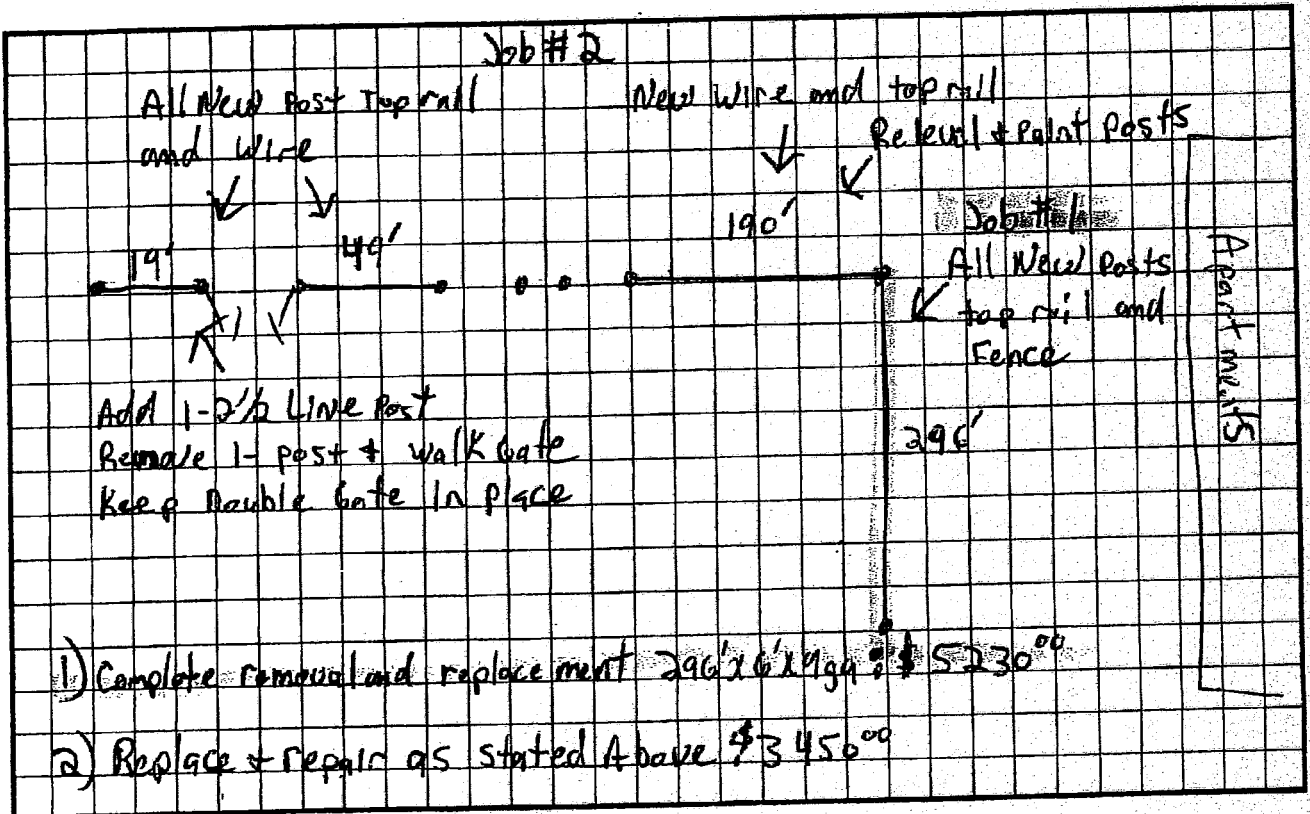 Job # 2
All New Post Top rail
and Wire
New Wire and top rail
Relevel & Paint Posts
19'
49'
190'
Job # 1
All New Posts
top rail and
Fence
Apartments
Add 1-2½ Line Post
Remove 1- post & walk Gate
Keep Double Gate In place
296'
1) Complete removal and replacement 296'x6'x9ga : $ 5230⁰⁰
2) Replace & repair as stated Above : $3450⁰⁰